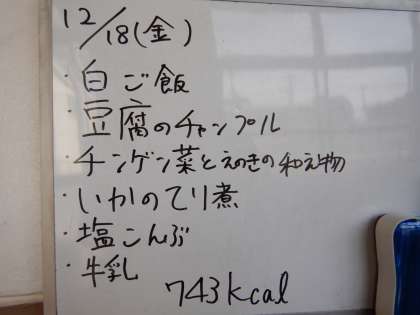 12/18(金)
・白ご飯
・豆腐のチャンプル
・チンゲン菜とえのきの和え物
・いかのてり煮
・塩こんぶ
・牛乳
743kcal